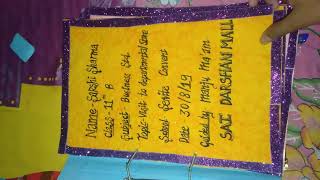 Name - Sakshi Sharma
Class - 11th B
Subject - Business Std.
Topic - Visit to departmental Store
School - Scottic Convent
Date 30/8/19
Guided by Manju Ma'am
SAI DARSHAN MALL